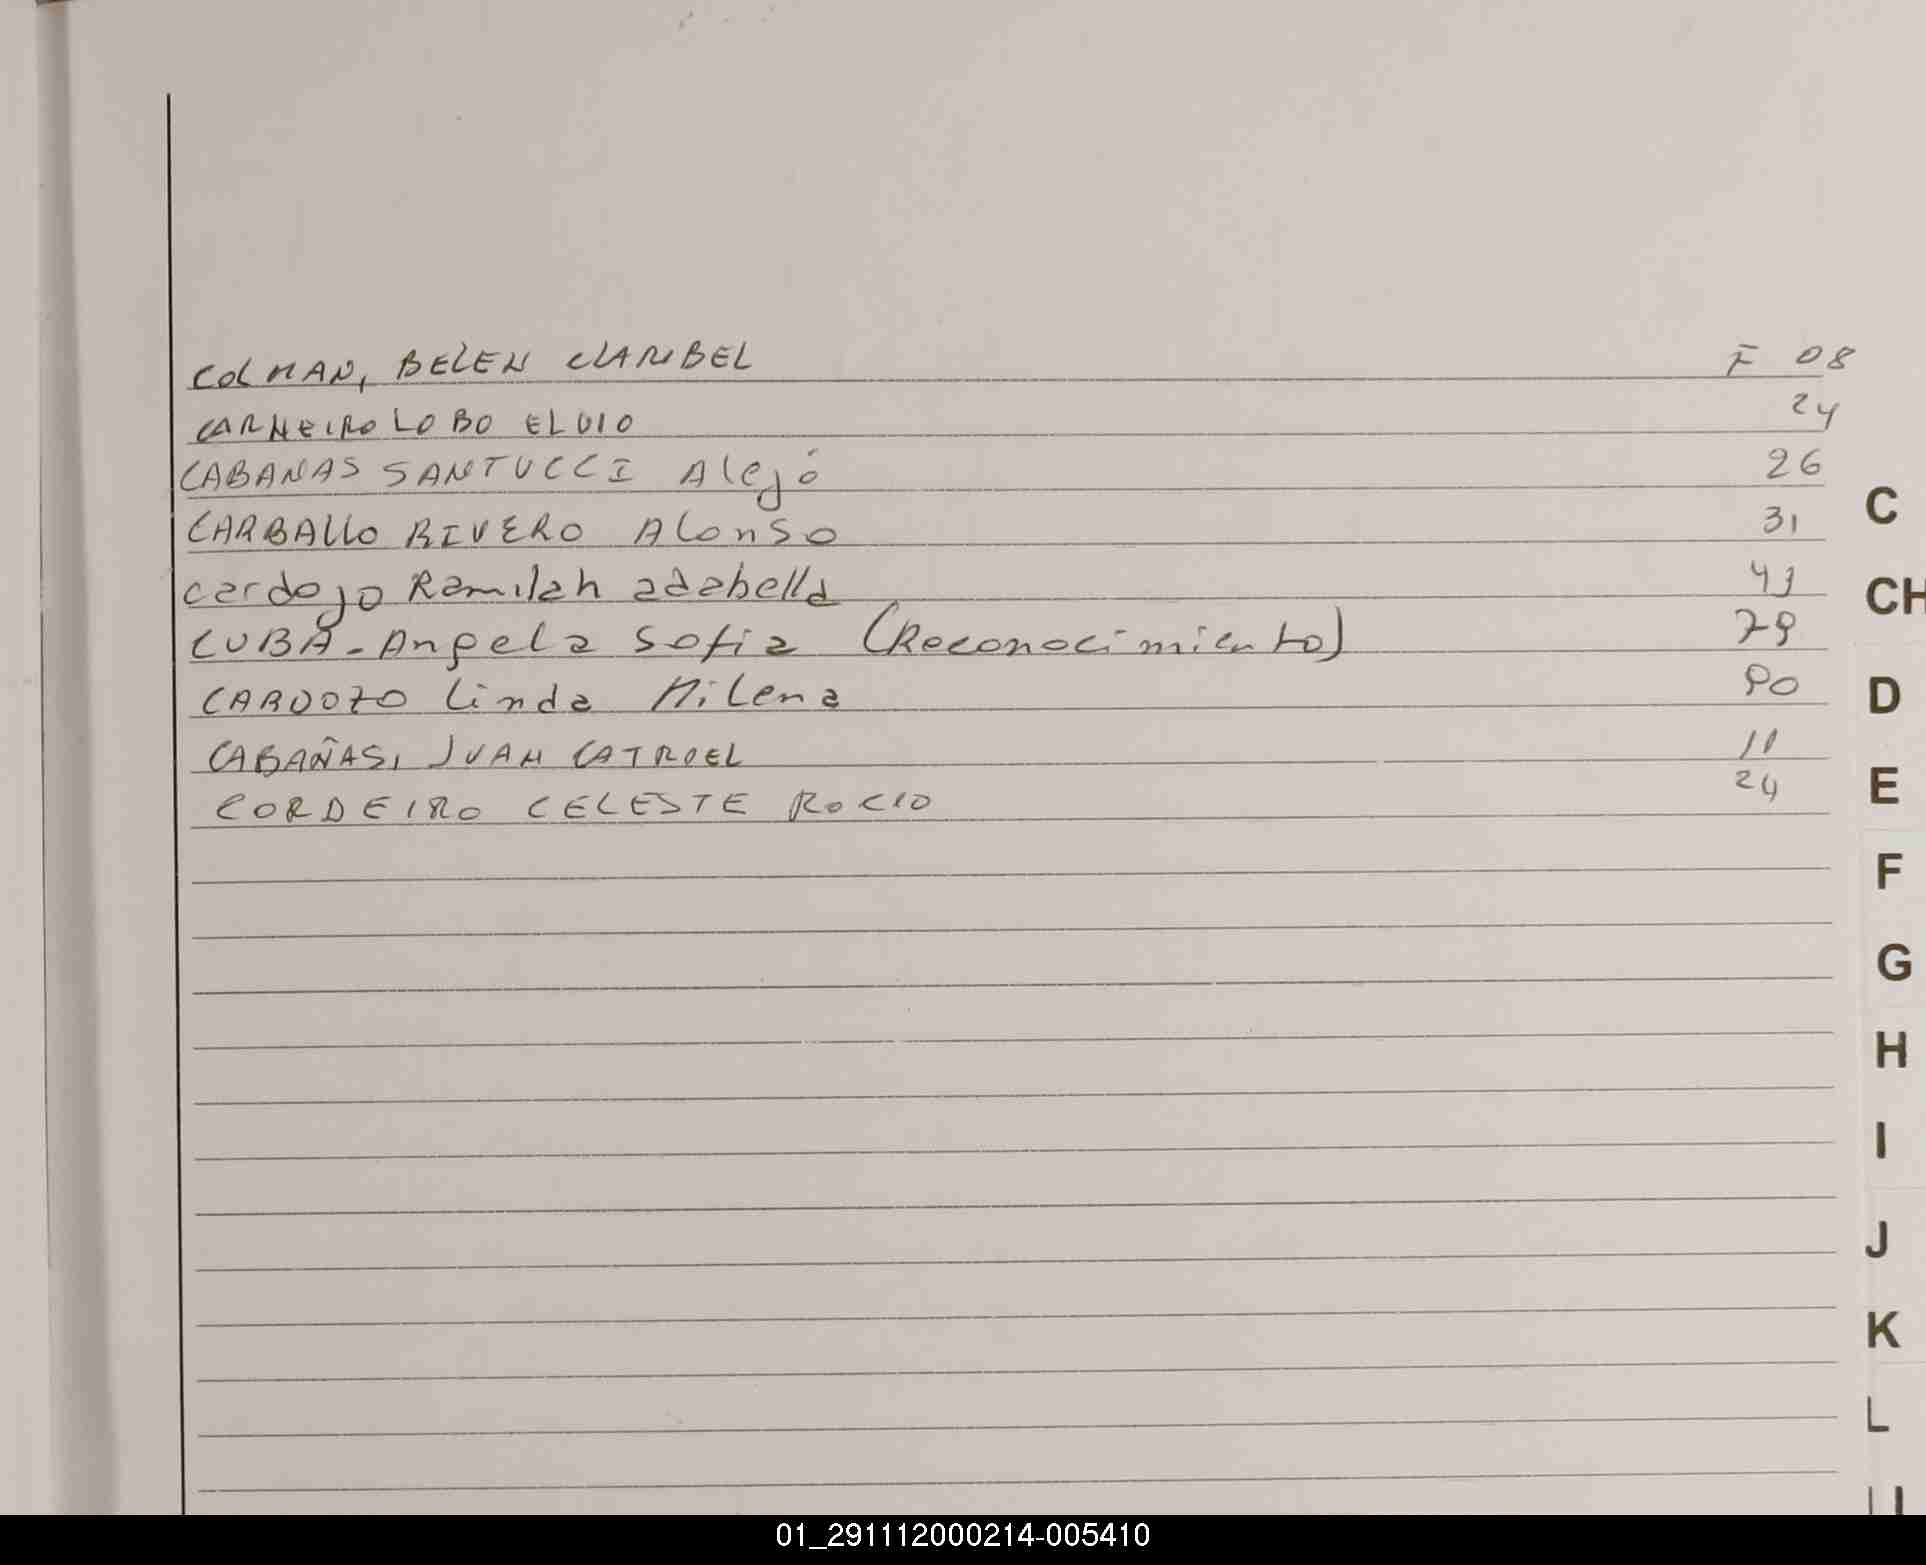 COLMAN, BELEN CLARIBEL F 08
CARNEIRO LOBO ELVIO 24
CABANAS SANTUCCI Alejo 26
CARBALLO RIVERO Alonso 31
cardozo Ramilah adabella 43
CUBA - Angela Sofia (Reconocimiento) 79
CARDOZO Linda Milena 90
CABAÑAS, JUAN CATRIEL 11
CORDEIRO CELESTE ROCIO 24
C
CH
D
E
F
G
H
I
J
K
L
01_291112000214-005410